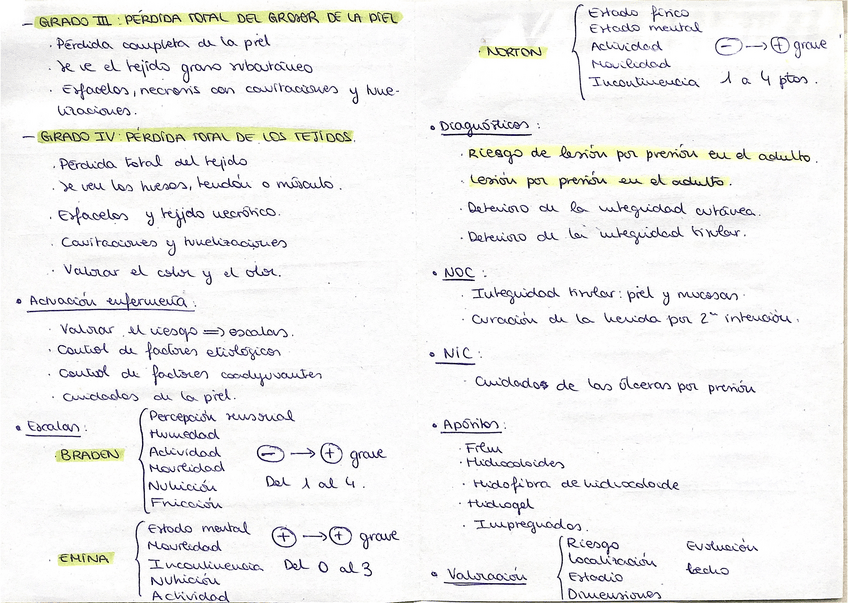 – GRADO III: PÉRDIDA TOTAL DEL GROSOR DE LA PIEL
· Pérdida completa de la piel
· Se ve el tejido graso subcutáneo
· Esfacelos, necrosis con cavitaciones y tune-
lizaciones.
– GRADO IV: PÉRDIDA TOTAL DE LOS TEJIDOS.
· Pérdida total del tejido
· Se ven los huesos, tendón o músculo.
· Esfacelos y tejido necrótico.
· Cavitaciones y tunelizaciones
· Valorar el color y el olor.
• Actuación enfermería:
· Valorar el riesgo => escalas.
· Control de factores etiológicos
· Control de factores coadyuvantes
· Cuidados de la piel.
• Escalas:
BRADEN
Percepción sensorial
Humedad
Actividad
Movilidad
Nutrición
Fricción
- → + grave
Del 1 al 4.
EMINA
Estado mental
Movilidad
Incontinencia
Nutrición
Actividad
+ → + grave
Del 0 al 3
· NORTON
Estado físico
Estado mental
Actividad
Movilidad
Incontinencia
- → + grave
1 a 4 ptos.
• Diagnósticos:
· Riesgo de lesión por presión en el adulto.
· Lesión por presión en el adulto.
· Deterioro de la integridad cutánea.
· Deterioro de la integridad tisular.
• NOC:
· Integridad tisular: piel y mucosas.
· Curación de la herida por 2ª intención.
• NIC:
· Cuidados de las úlceras por presión
• Apósitos:
· Film
· Hidrocoloides
· Hidrofibra de hidrocoloide
· Hidrogel
· Impregnados.
• Valoración
Riesgo
Localización
Estadio
Dimensiones
Evolución
Lecho